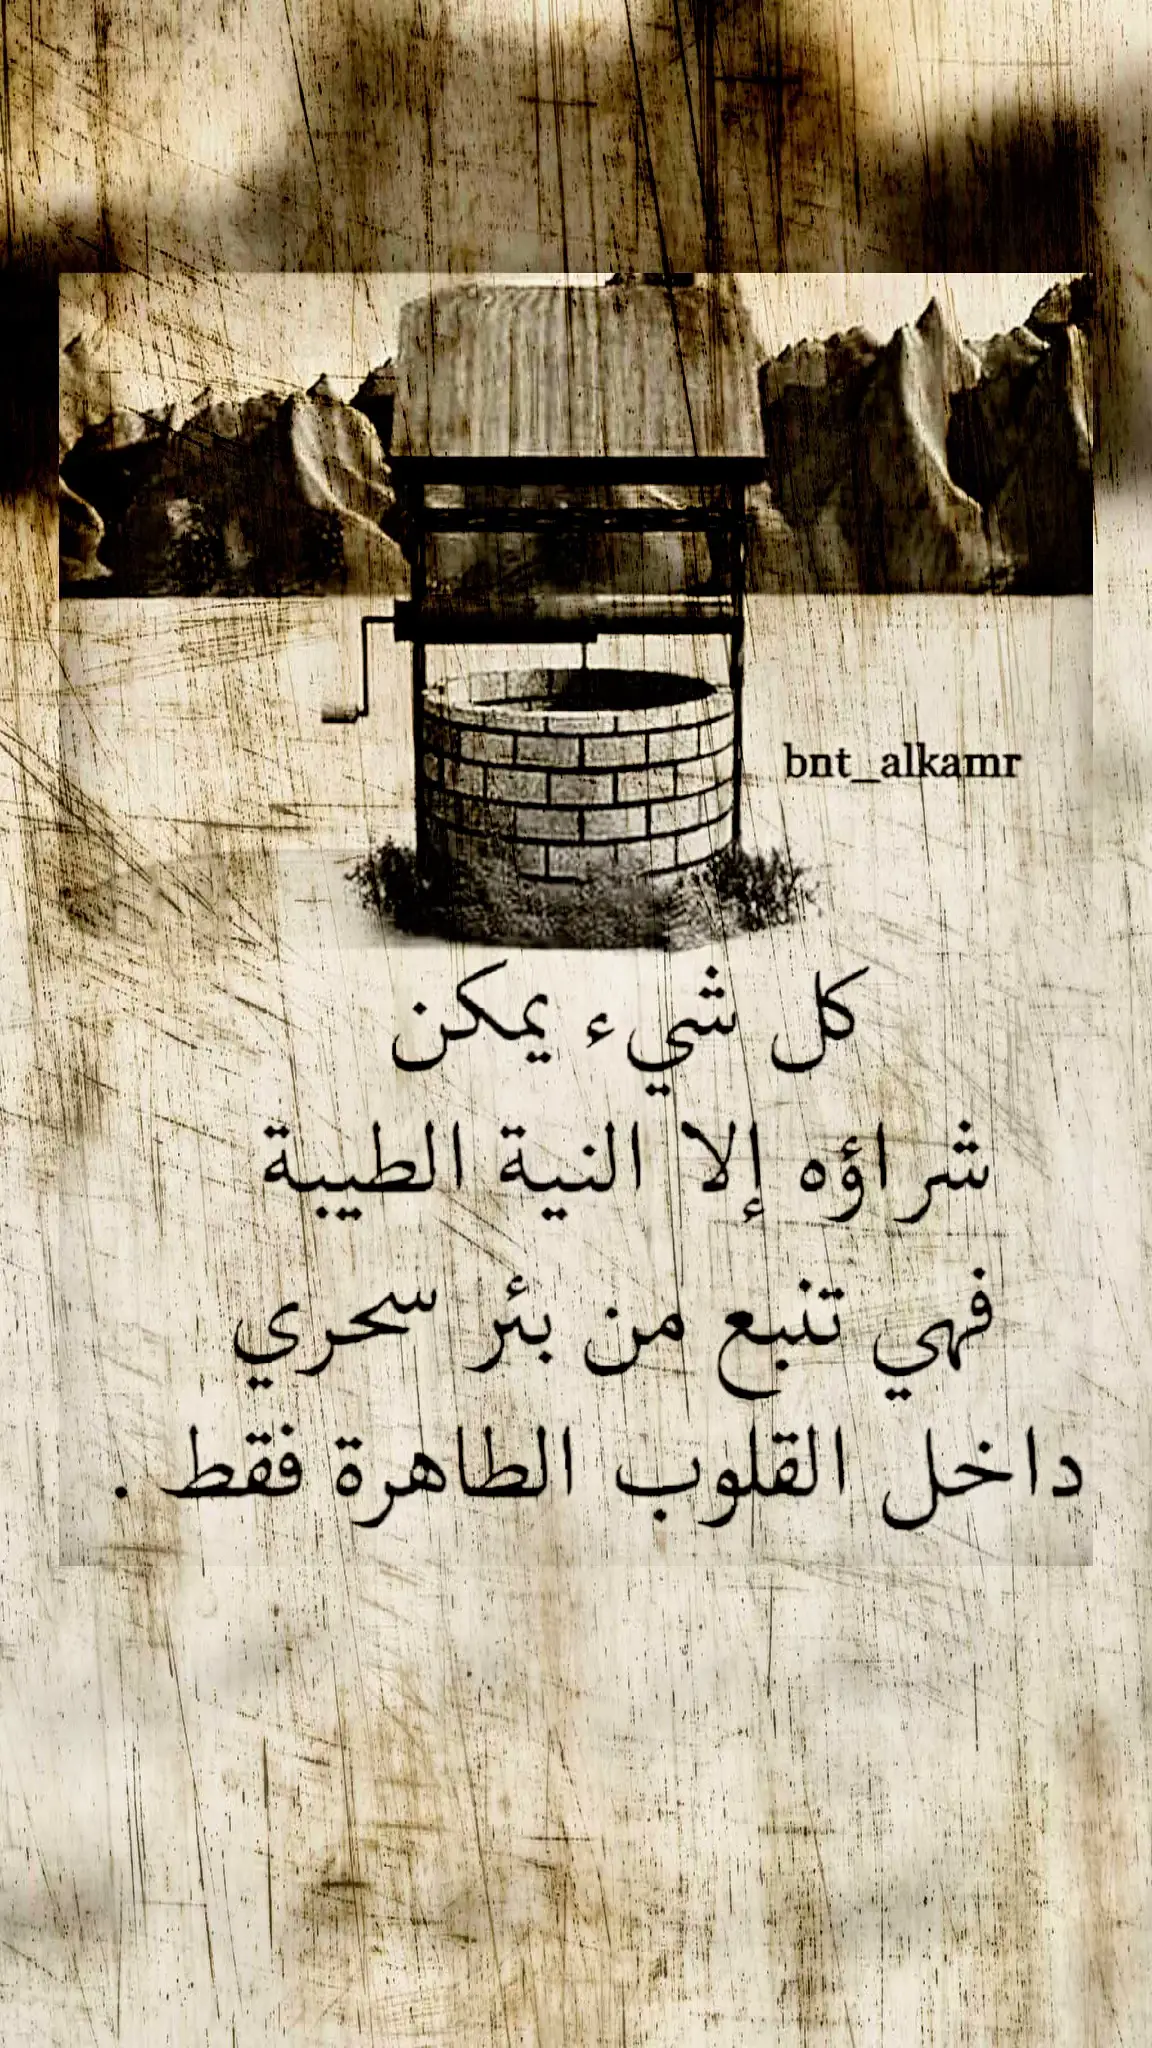 bnt_alkamr
كل شيء يمكن
شراؤه إلا النية الطيبة
فهي تنبع من بئر سحري
داخل القلوب الطاهرة فقط .